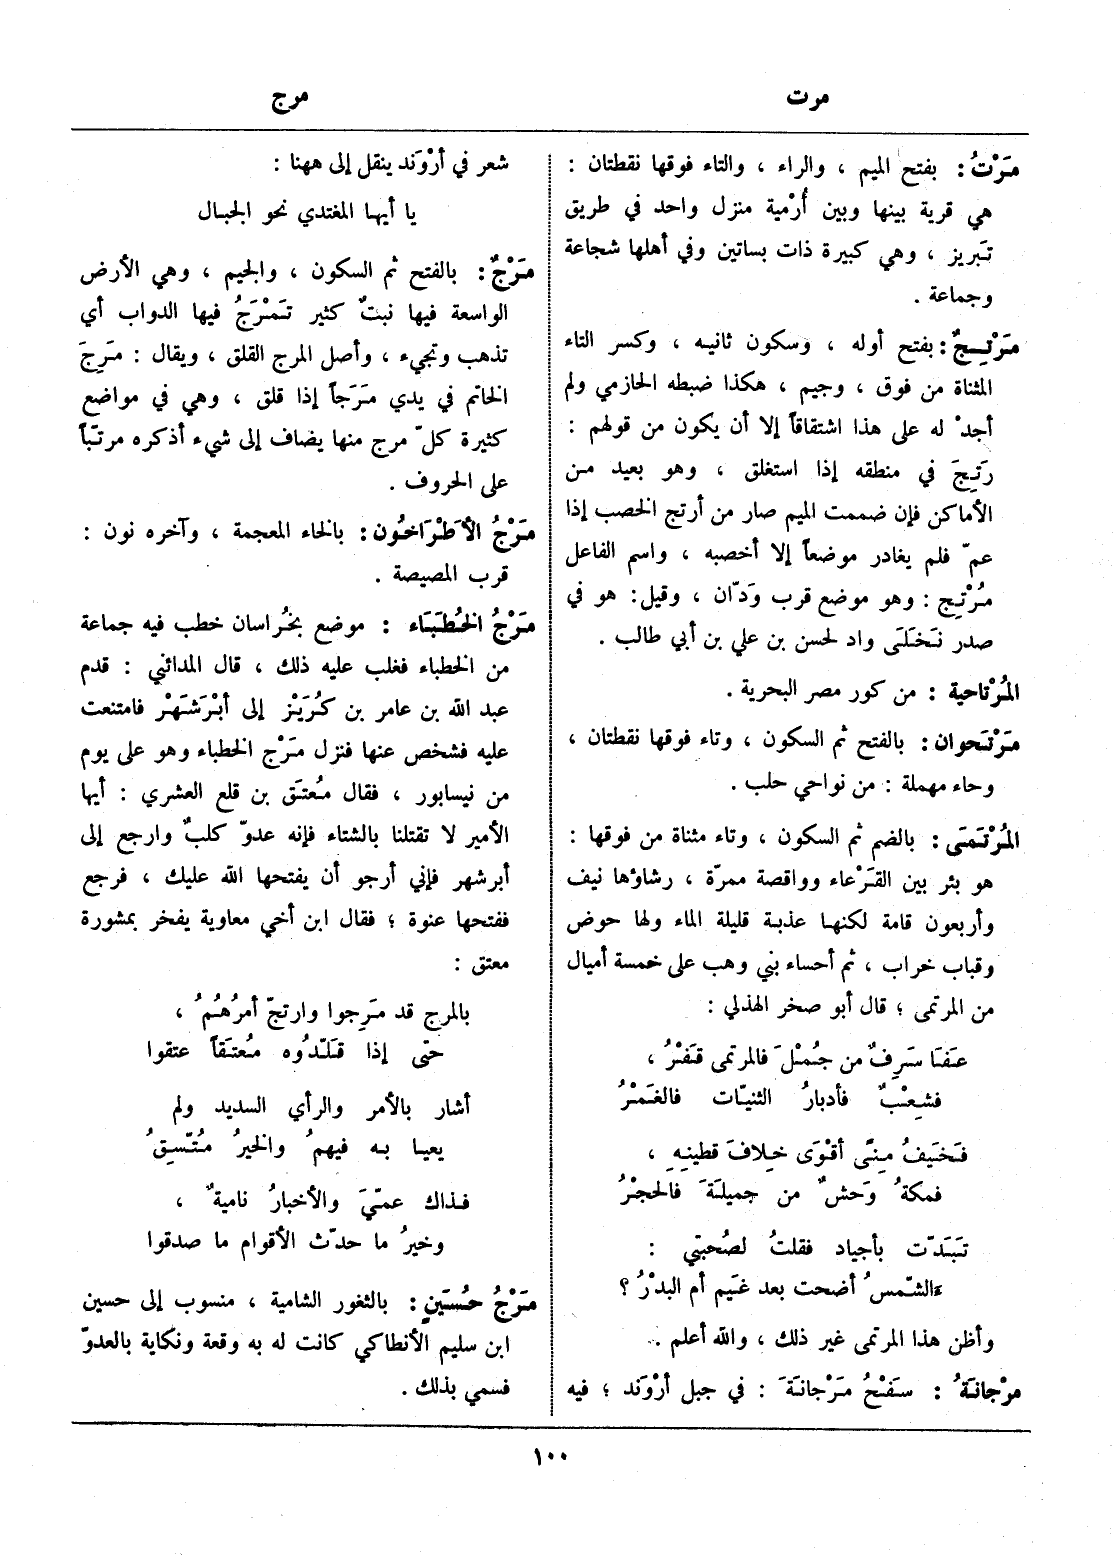 مرت
مرج
مَرْتُ: بفتح الميم ، والراء ، والتاء فوقها نقطتان :
هي قرية بينها وبين أُرْمية منزل واحد في طريق
تبريز ، وهي كبيرة ذات بساتين وفي أهلها شجاعة
وجماعة .
مَرْتِجٌ: بفتح أوله ، وسكون ثانيه ، وكسر التاء
المثناة من فوق ، وجيم ، هكذا ضبطه الحازمي ولم
أجدْ له على هذا اشتقاقاً إلا أن يكون من قولهم :
رَتِجَ في منطقه إذا استغلق ، وهو بعيد من
الأماكن فإن ضممت الميم صار من أرتج الخصب إذا
عمّ فلم يغادر موضعاً إلا أخصبه ، واسم الفاعل
مُرْتِج : وهو موضع قرب وَدّان ، وقيل : هو في
صدر نَخلَى واد لحسن بن علي بن أبي طالب .
المُرْتاحية : من كور مصر البحرية .
مَرْتَحوان: بالفتح ثم السكون ، وتاء فوقها نقطتان ،
وحاء مهملة : من نواحي حلب .
المُرْتَمَى: بالضم ثم السكون ، وتاء مثناة من فوقها :
هو بئر بين القَرْعاء وواقصة ممرّة ، رشاؤها نيف
وأربعون قامة لكنها عذبة قليلة الماء ولها حوض
وقباب خراب ، ثم أحساء بني وهب على خمسة أميال
من المرتمى ؛ قال أبو صخر الهذلي :
عَفَا سَرِفٌ من جُمْلَ فالمرتمى قَفْرُ ،
فشِعْبٌ فأدبارُ الثنيّات فالغَمْرُ
فَخَيفُ مِنىً أقْوَى خِلافَ قطينِهِ ،
فمكةُ وَحْشٌ من جميلَةَ فالحجْرُ
تَبَدّت بأجياد فقلتُ لصُحبتي :
ءالشّمسُ أضحت بعد غَيم أم البدْرُ ؟
وأظن هذا المرتمى غير ذلك ، والله أعلم .
مرْجانَةُ : سَفْحُ مَرْجانَةَ : في جبل أرْوَند ؛ فيه
شعر في أرْوَند ينقل إلى ههنا :
يا أيها المغتدي نحو الجبال
مَرْجٌ: بالفتح ثم السكون ، والجيم ، وهي الأرض
الواسعة فيها نبتٌ كثير تَمْرَجُ فيها الدواب أي
تذهب وتجيء ، وأصل المرج القلق ، ويقال : مَرِجَ
الخاتم في يدي مَرَجاً إذا قلق ، وهي في مواضع
كثيرة كلّ مرج منها يضاف إلى شيء أذكره مرتّباً
على الحروف .
مَرْجُ الأَطْرَاخُون: بالخاء المعجمة ، وآخره نون :
قرب المصيصة .
مَرْجُ الخُطَبَاء : موضع بخُراسان خطب فيه جماعة
من الخطباء فغلب عليه ذلك ، قال المدائني : قدم
عبد الله بن عامر بن كُرَيْز إلى أبْرَشَهْر فامتنعت
عليه فشخص عنها فنزل مَرْج الخطباء وهو على يوم
من نيسابور ، فقال مُعتَق بن قلع العشري : أيها
الأمير لا تقتلنا بالشتاء فإنه عدوّ كلبٌ وارجع إلى
أبرشهر فإني أرجو أن يفتحها الله عليك ، فرجع
ففتحها عنوة ؛ فقال ابن أخي معاوية يفخر بمشورة
معتق :
بالمرج قد مَرِجوا وارتجّ أمرُهُمُ ،
حتى إذا قَلّدُوه مُعتَقاً عتقوا
أشار بالأمر والرأي السديد ولم
يعيا به فيهمُ والخيرُ مُتّسِقُ
فذاك عمّيَ والأخبارُ ناميةٌ ،
وخيرُ ما حدّث الأقوام ما صدقوا
مَرْجُ حُسَينٍ: بالثغور الشامية ، منسوب إلى حسين
ابن سليم الأنطاكي كانت له به وقعة ونكاية بالعدوّ
فسمي بذلك .
١٠٠